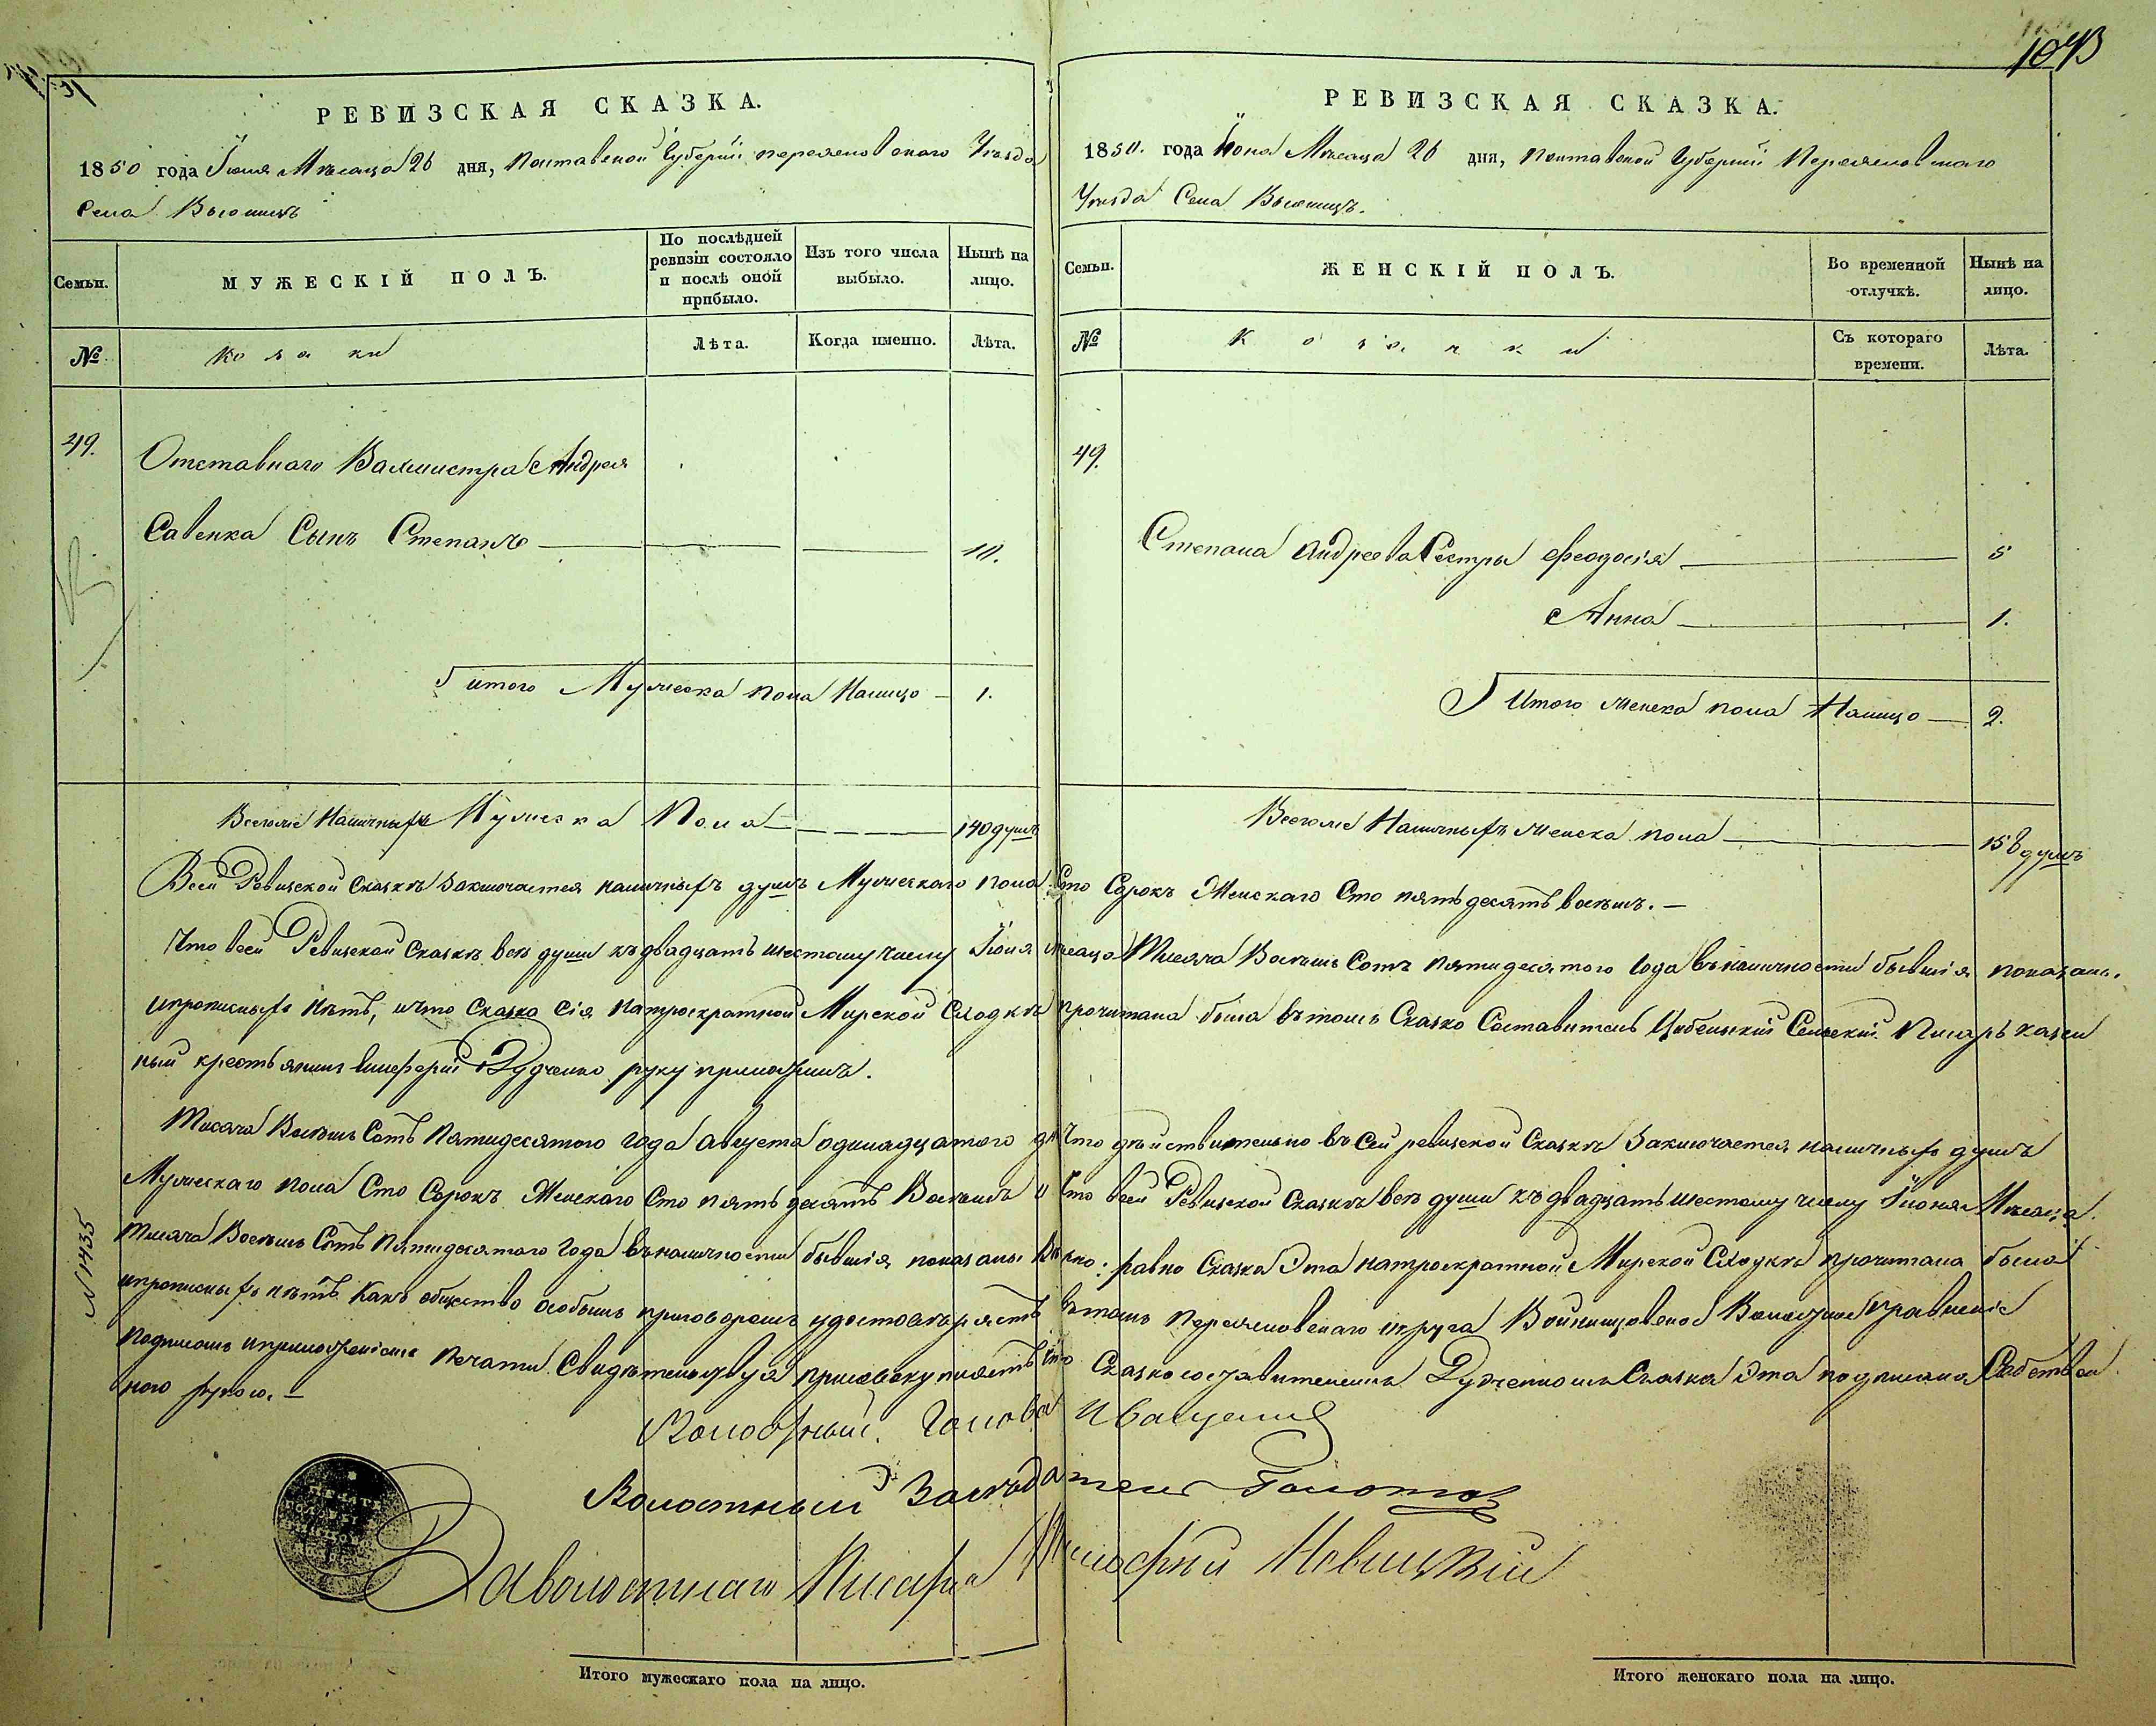 1073
РЕВИЗСКАЯ СКАЗКА.
1850 года Іюня Мѣсяца 26 дня, Полтавской Губерніи переяславского Уѣзда
Села Вьюнищъ
Семьи.
МУЖЕСКІЙ ПОЛЪ.
По послѣдней ревизіи состояло и послѣ оной прибыло.
Изъ того числа выбыло.
Нынѣ на лицо.
№
Козаки
Лѣта.
Когда именно.
Лѣта.
49.
Отставнаго Вахмистра Андрея
Савенка Сынъ Степанъ
10.
Итого Мужеска пола Налицо — 1.
Всегоже Наличныхъ Мужеска Пола — 140 душъ
РЕВИЗСКАЯ СКАЗКА.
1850. года Іюня Мѣсяца 26 дня, Полтавской Губерніи Переяславскаго
Уѣзда Села Вьюнищъ.
Семьи.
ЖЕНСКІЙ ПОЛЪ.
Во временной отлучкѣ.
Нынѣ на лицо.
№
Козачки
Съ котораго времени.
Лѣта.
49.
Степана Андреева Сестры Феодосія — 5
Анна — 1.
Итого женска пола Налицо — 2.
Всегоже Наличныхъ женска пола — 158 душъ
Всей Ревизской Сказкѣ Заключается наличныхъ душъ Мужескаго пола Сто Сорокъ Женскаго Сто пятьдесятъ восемь. —
Что всей Ревизской Сказкѣ всѣ души къ двадцать шестому числу Іюня мѣсяца Тысяча Восемь Сотъ пятидесятого Года въ наличности бывшія показаны.
и прописныхъ нѣтъ, и что Сказка Сія на троекратной Мирской Сходкѣ прочитана была въ томъ Сказко Составитель Цибельскій Сельскій Писарь казен
ный крестьянинъ Дудченко руку приложилъ.
Тысяча Восемь Сотъ Пятидесятого года Августа одинадцатого дня Что дѣйствительно въ Сей ревизской Сказкѣ Заключается наличныхъ душъ
Мужескаго пола Сто Сорокъ Женскаго Сто пятьдесятъ Восемь и Что всей Ревизской Сказкѣ всѣ души къ двадцать шестому числу Іюня Мѣсяца
Тысяча Восемь Сотъ Пятидесятого Года въ наличности бывшія показаны Вѣрно: равно Сказка Эта на троекратной Мирской Сходкѣ прочитана была
и прописныхъ нѣтъ Какъ общество особымъ приговоромъ удостовѣряетъ въ томъ Переяславскаго округа Войнинцовское Волостное Правленіе
подписомъ и приложеніемъ Печати Свидѣтельствуя присовокупляетъ что Сказкосоставителемъ Дудченкомъ Сказка Эта подписана Собствен
ного рукою. —
№ 1435
Волостный Голова Иващенко
Волостный Засѣдатель
За волостнаго Писаря Новицкій
Итого мужескаго пола на лицо.
Итого женскаго пола на лицо.